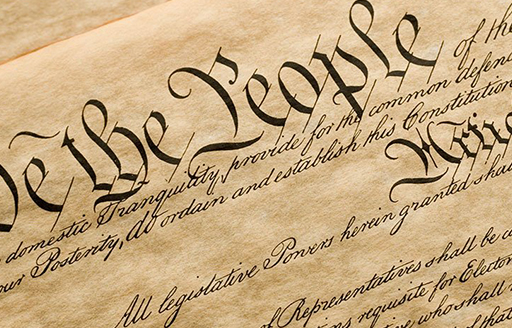 We the People of the
domestic Tranquility, provide for the common defence
our Posterity, do ordain and establish this Constitution
All legislative Powers herein granted shall
of Representatives shall be
requisite for Elector
who shall
that